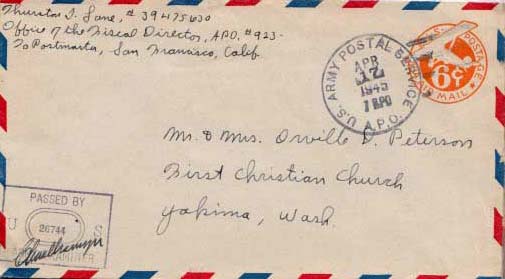 Thurston I. Lane, # 39475630
Office of the Fiscal Director, APO. #923-
To Postmaster, San Francisco, Calif.
U.S. POSTAGE
6¢
VIA AIR MAIL
U.S. ARMY POSTAL SERVICE
APR
12
1945
A.P.O.
Mr. & Mrs. Orville D. Peterson
First Christian Church
Yakima, Wash.
PASSED BY
U S
26744
EXAMINER